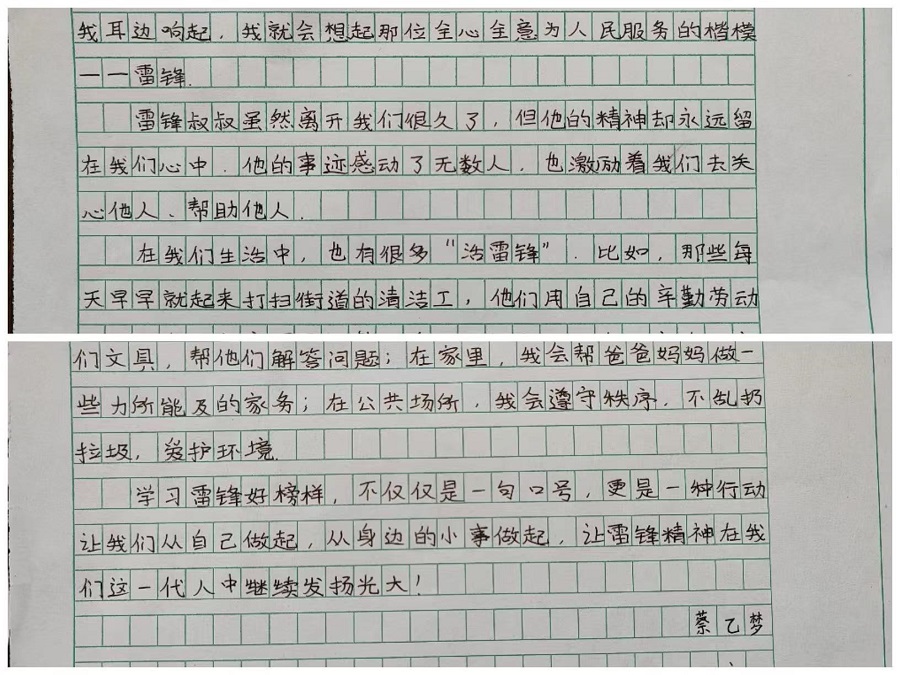 我耳边响起，我就会想起那位全心全意为人民服务的楷模
——雷锋.
雷锋叔叔虽然离开我们很久了，但他的精神却永远留
在我们心中.他的事迹感动了无数人，也激励着我们去关
心他人、帮助他人.
在我们生活中，也有很多“活雷锋”.比如，那些每
天早早就起来打扫街道的清洁工，他们用自己的辛勤劳动
们文具，帮他们解答问题；在家里，我会帮爸爸妈妈做一
些力所能及的家务；在公共场所，我会遵守秩序，不乱扔
垃圾，爱护环境.
学习雷锋好榜样，不仅仅是一句口号，更是一种行动
让我们从自己做起，从身边的小事做起，让雷锋精神在我
们这一代人中继续发扬光大！
蔡乙梦